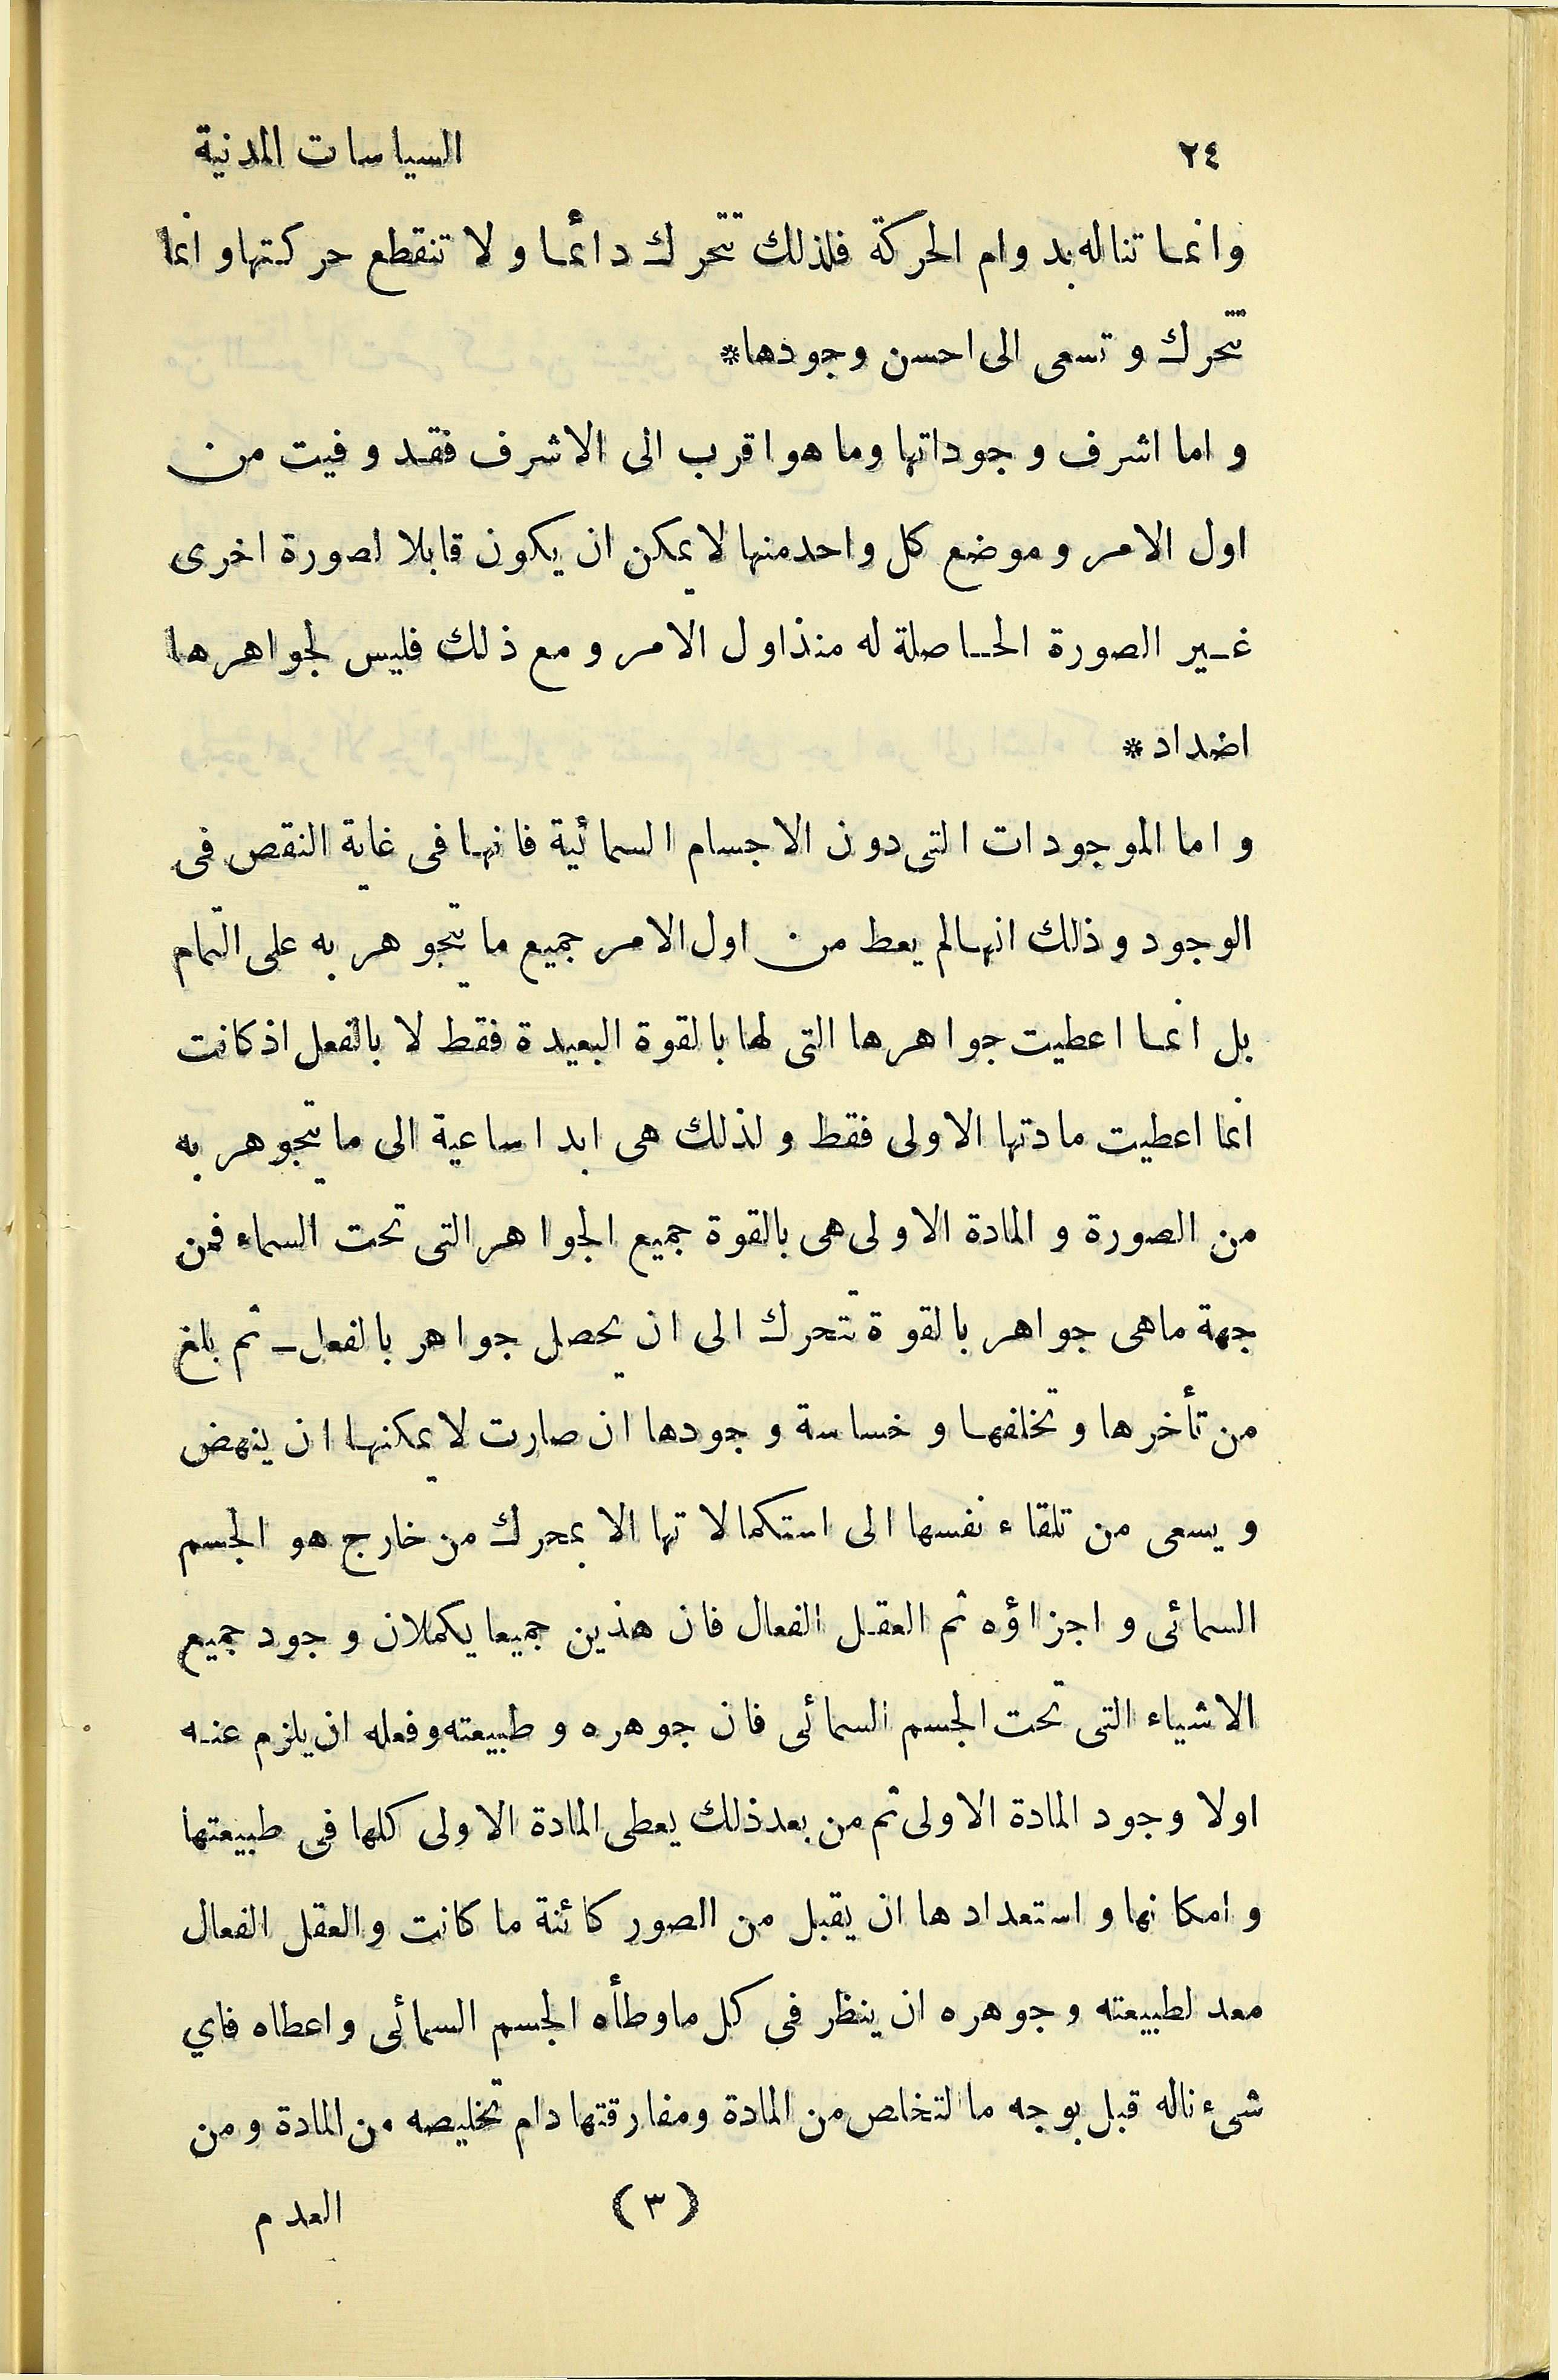 ٢٤ السياسات المدنية
وانما تناله بدوام الحركة فلذلك تتحرك دائما ولا تنقطع حركتها وانما
تتحرك وتسعى الى احسن وجودها*
واما اشرف وجوداتها وما هو اقرب الى الاشرف فقد وفيت من
اول الامر وموضع كل واحد منها لا يمكن ان يكون قابلا لصورة اخرى
غير الصورة الحاصلة له منذ اول الامر ومع ذلك فليس لجواهرها
اضداد*
واما الموجودات التى دون الاجسام السمائية فانها فى غاية النقص فى
الوجود وذلك انها لم يعط من اول الامر جميع ما يتجوهر به على التمام
بل انما اعطيت جواهرها التى لها بالقوة البعيدة فقط لا بالفعل اذ كانت
انما اعطيت مادتها الاولى فقط ولذلك هى ابدا ساعية الى ما يتجوهر به
من الصورة والمادة الاولى هى بالقوة جميع الجواهر التى تحت السماء فمن
جهة ماهى جواهر بالقوة تتحرك الى ان يحصل جواهر بالفعل ـ ثم بلغ
من تأخرها وتخلفها وخساسة وجودها ان صارت لا يمكنها ان ينهض
ويسعى من تلقاء نفسها الى استكمالاتها الا بمحرك من خارج هو الجسم
السمائى واجزاؤه ثم العقل الفعال فان هذين جميعا يكملان وجود جميع
الاشياء التى تحت الجسم السمائى فان جوهره وطبيعته وفعله ان يلزم عنه
اولا وجود المادة الاولى ثم من بعد ذلك يعطى المادة الاولى كلها فى طبيعتها
وامكانها واستعدادها ان يقبل من الصور كائنة ما كانت والعقل الفعال
معد لطبيعته وجوهره ان ينظر فى كل ماوطأه الجسم السمائى واعطاه فاي
شىء ناله قبل بوجه ما لتخلص من المادة ومفارقتها دام تخليصه من المادة ومن
(٣) العدم